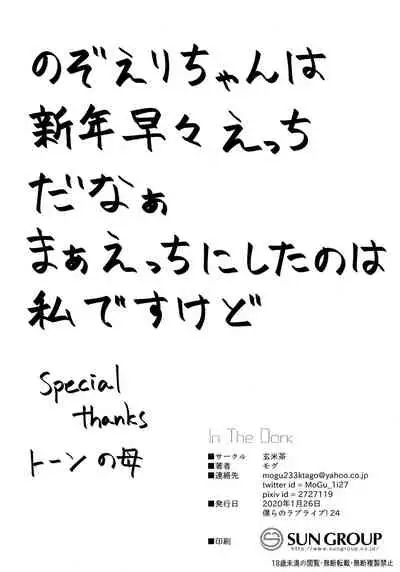 のぞえりちゃんは
新年早々えっち
だなぁ
まぁえっちにしたのは
私ですけど
Special
thanks
トーンの母
In The Dark
■サークル 玄米茶
■著者 モグ
■連絡先 mogu233ktago@yahoo.co.jp
twitter id = MoGu_1i27
pixiv id = 2727119
■発行日 2020年1月26日
僕らのラブライブ!24
■印刷 SUN GROUP
http://www.sungroup.co.jp/
18歳未満の閲覧・無断転載・無断複製禁止